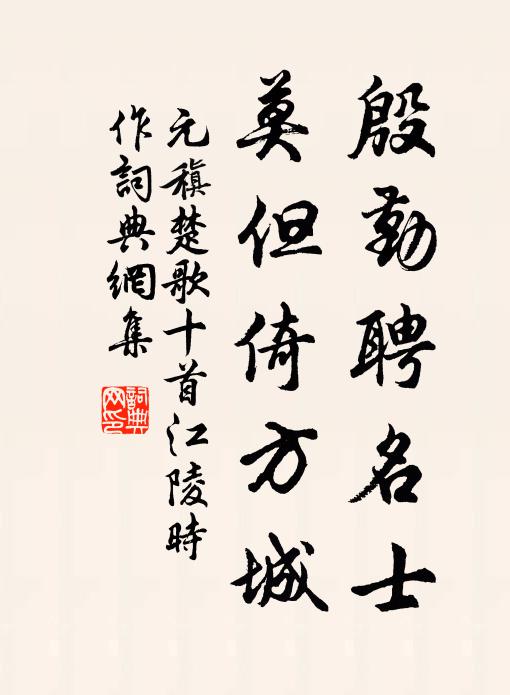 殷勤聘名士
莫但倚方城
元稹楚歌十首江陵時
作詞典網集
詞典网印